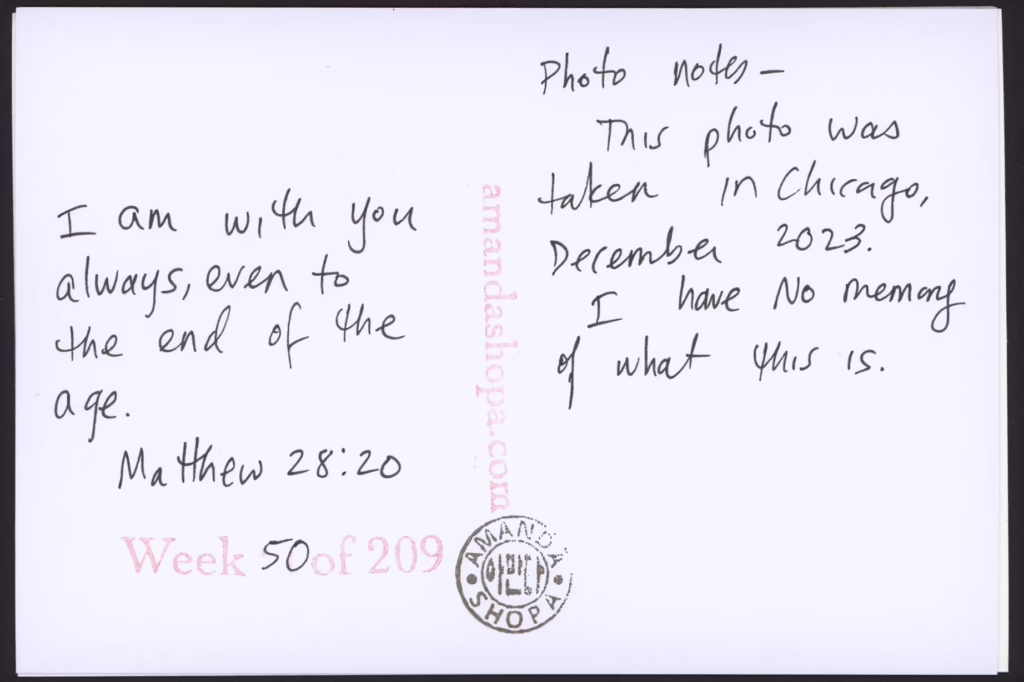 I am with you
always, even to
the end of the
age.
Matthew 28:20
Week 50 of 209
amandashopa.com
AMANDA
아만다
SHOPA
Photo notes –
This photo was
taken in Chicago,
December 2023.
I have No memory
of what this is.